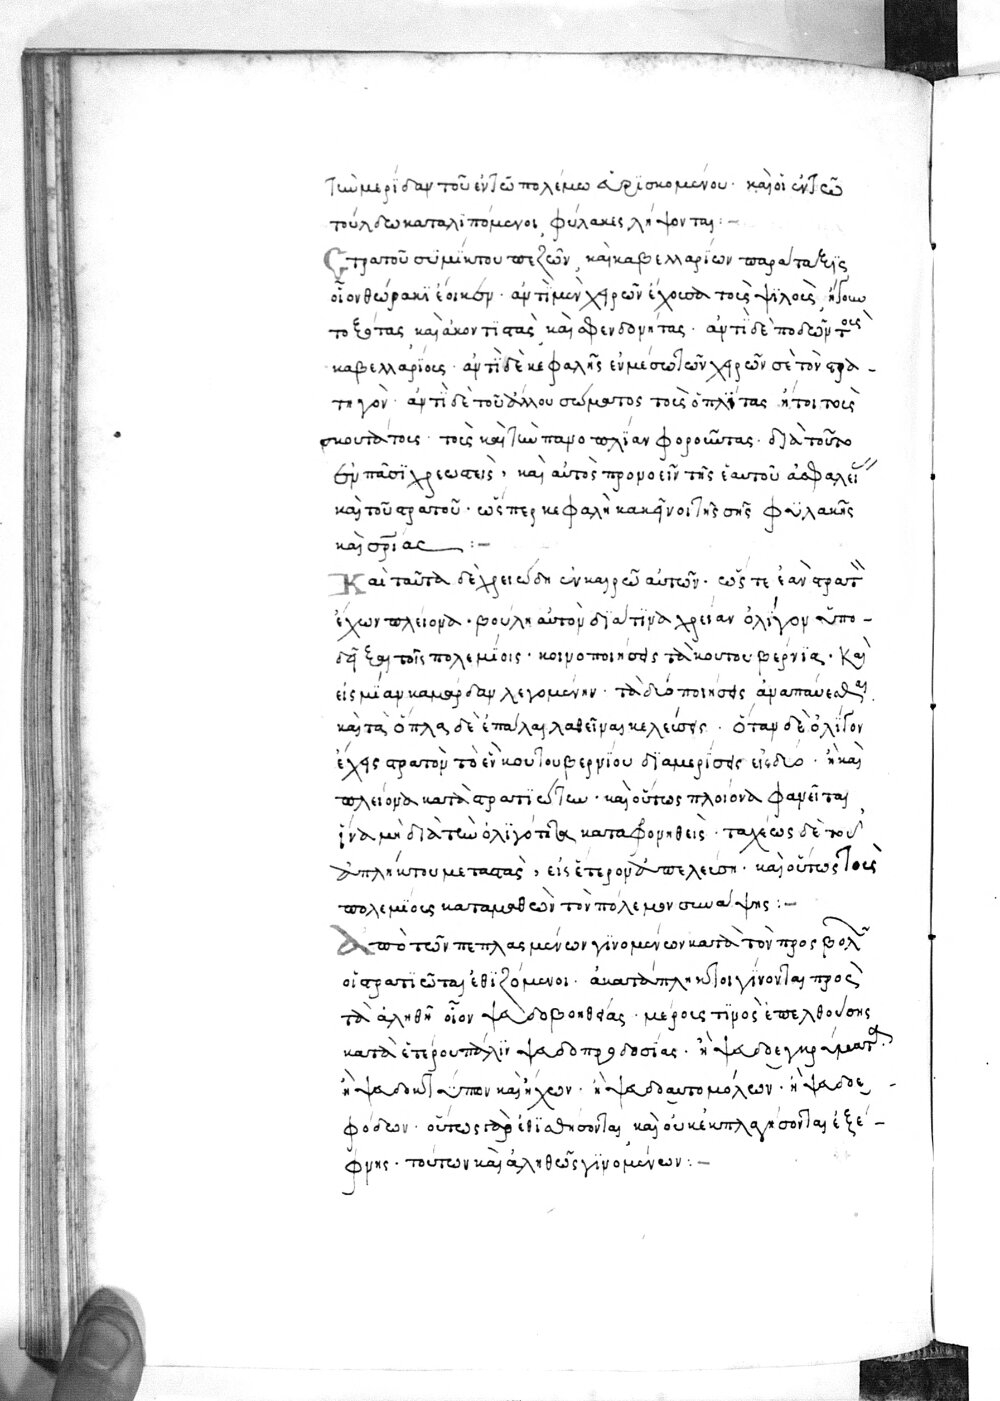 τὴν μερίδαν τοῦ ἐν τῶ πολέμω εὑρισκομένου· καὶ οἱ ἐν τῶ
τούλδω καταλιπόμενοι φύλακες λήψονται :–
Στρατοῦ συμίκτου πεζῶν καὶ καβελλαρίων παράταξις
οἷον θώρακι ἔοικεν· ἀντὶ μὲν χειρῶν ἔχουσα τοὺς ψιλοὺς ἤγουν
τοξότας καὶ ἀκοντιστὰς καὶ σφενδονήτας· ἀντὶ δὲ ποδῶν τοὺς
καβελλαρίους· ἀντὶ δὲ κεφαλῆς ἐν μέσω τῶν χειρῶν σὲ τὸν στρα-
τηγὸν· ἀντὶ δὲ τοῦ ἄλλου σώματος τοὺς ὁπλίτας ἤτοι τοὺς
σκουτάτους· τοὺς καὶ τὴν πανοπλίαν φοροῦντας· διὰ τοῦτο
ἐν πᾶσι χρεωστεῖς, καὶ αὐτὸς προνοεῖν τῆς ἑαυτοῦ ἀσφαλεί
καὶ τοῦ στρατοῦ· ὥσπερ κεφαλὴ κἀκεῖνοι τῆς σῆς φυλακῆς
καὶ σρίας :–
Καὶ ταῦτα δὲ χρειώδη ἐν καιρῶ αὐτῶν· ὥστε ἐὰν στρατ
ἔχων πλείονα· βούλη αὐτὸν διά τινα χρείαν ὀλίγον ὑπο-
δεῖξαι τοῖς πολεμίοις· κοινοποιήσεις τὰ κουτουβέρνια· Καὶ
εἰς μίαν καμάρδαν λεγομένην· τὰ δύο ποιήσεις ἀναπαύεσθαι.
καὶ τὰ ὅπλα δὲ ἐπάλαι λαβεῖναι κελεύσεις· ὅταν δὲ ὀλίγον
ἔχεις στρατὸν τὸ ἓν κουτουβερνίου διαμερίσεις εἰς δύο· ἢ καὶ
πλείονα κατὰ στρατιώτων· καὶ οὕτως πλοίονα φανεῖται
ἵνα μὴ διὰ τὴν ὀλιγότητα καταφρονηθεὶς· ταχέως δὲ τοῦ
ἀπλήκτου μεταστὰς, εἰς ἕτερον ἀπελεύση· καὶ οὕτως τοῖς
πολεμίοις καταμαθὼν τὸν πόλεμον συνάψης :–
Ἀπὸ τῶν πεπλασμένων γινομένων κατὰ τὸν προσβολ
οἱ στρατιῶται ἐθιζόμενοι· ἀκατάπληκτοι γίνονται πρὸς
τὰ ἀληθῆ οἷον ψευδοβοηθείας· μέρους τινὸς ἐπελθούσης
κατὰ ἑτέρου πάλιν ψευδοπροδοσίας· ἢ ψευδεγκράματ
ἢ ψευδοκτύπων καὶ ἤχων· ἢ ψευδαυτομόλων· ἢ ψευδε-
φόδων· οὕτως γὰρ ἐθισθήσονται καὶ οὐκ ἐκπλαγήσονται ἐξέ-
φνης· τούτων καὶ ἀληθῶς γινομένων :–